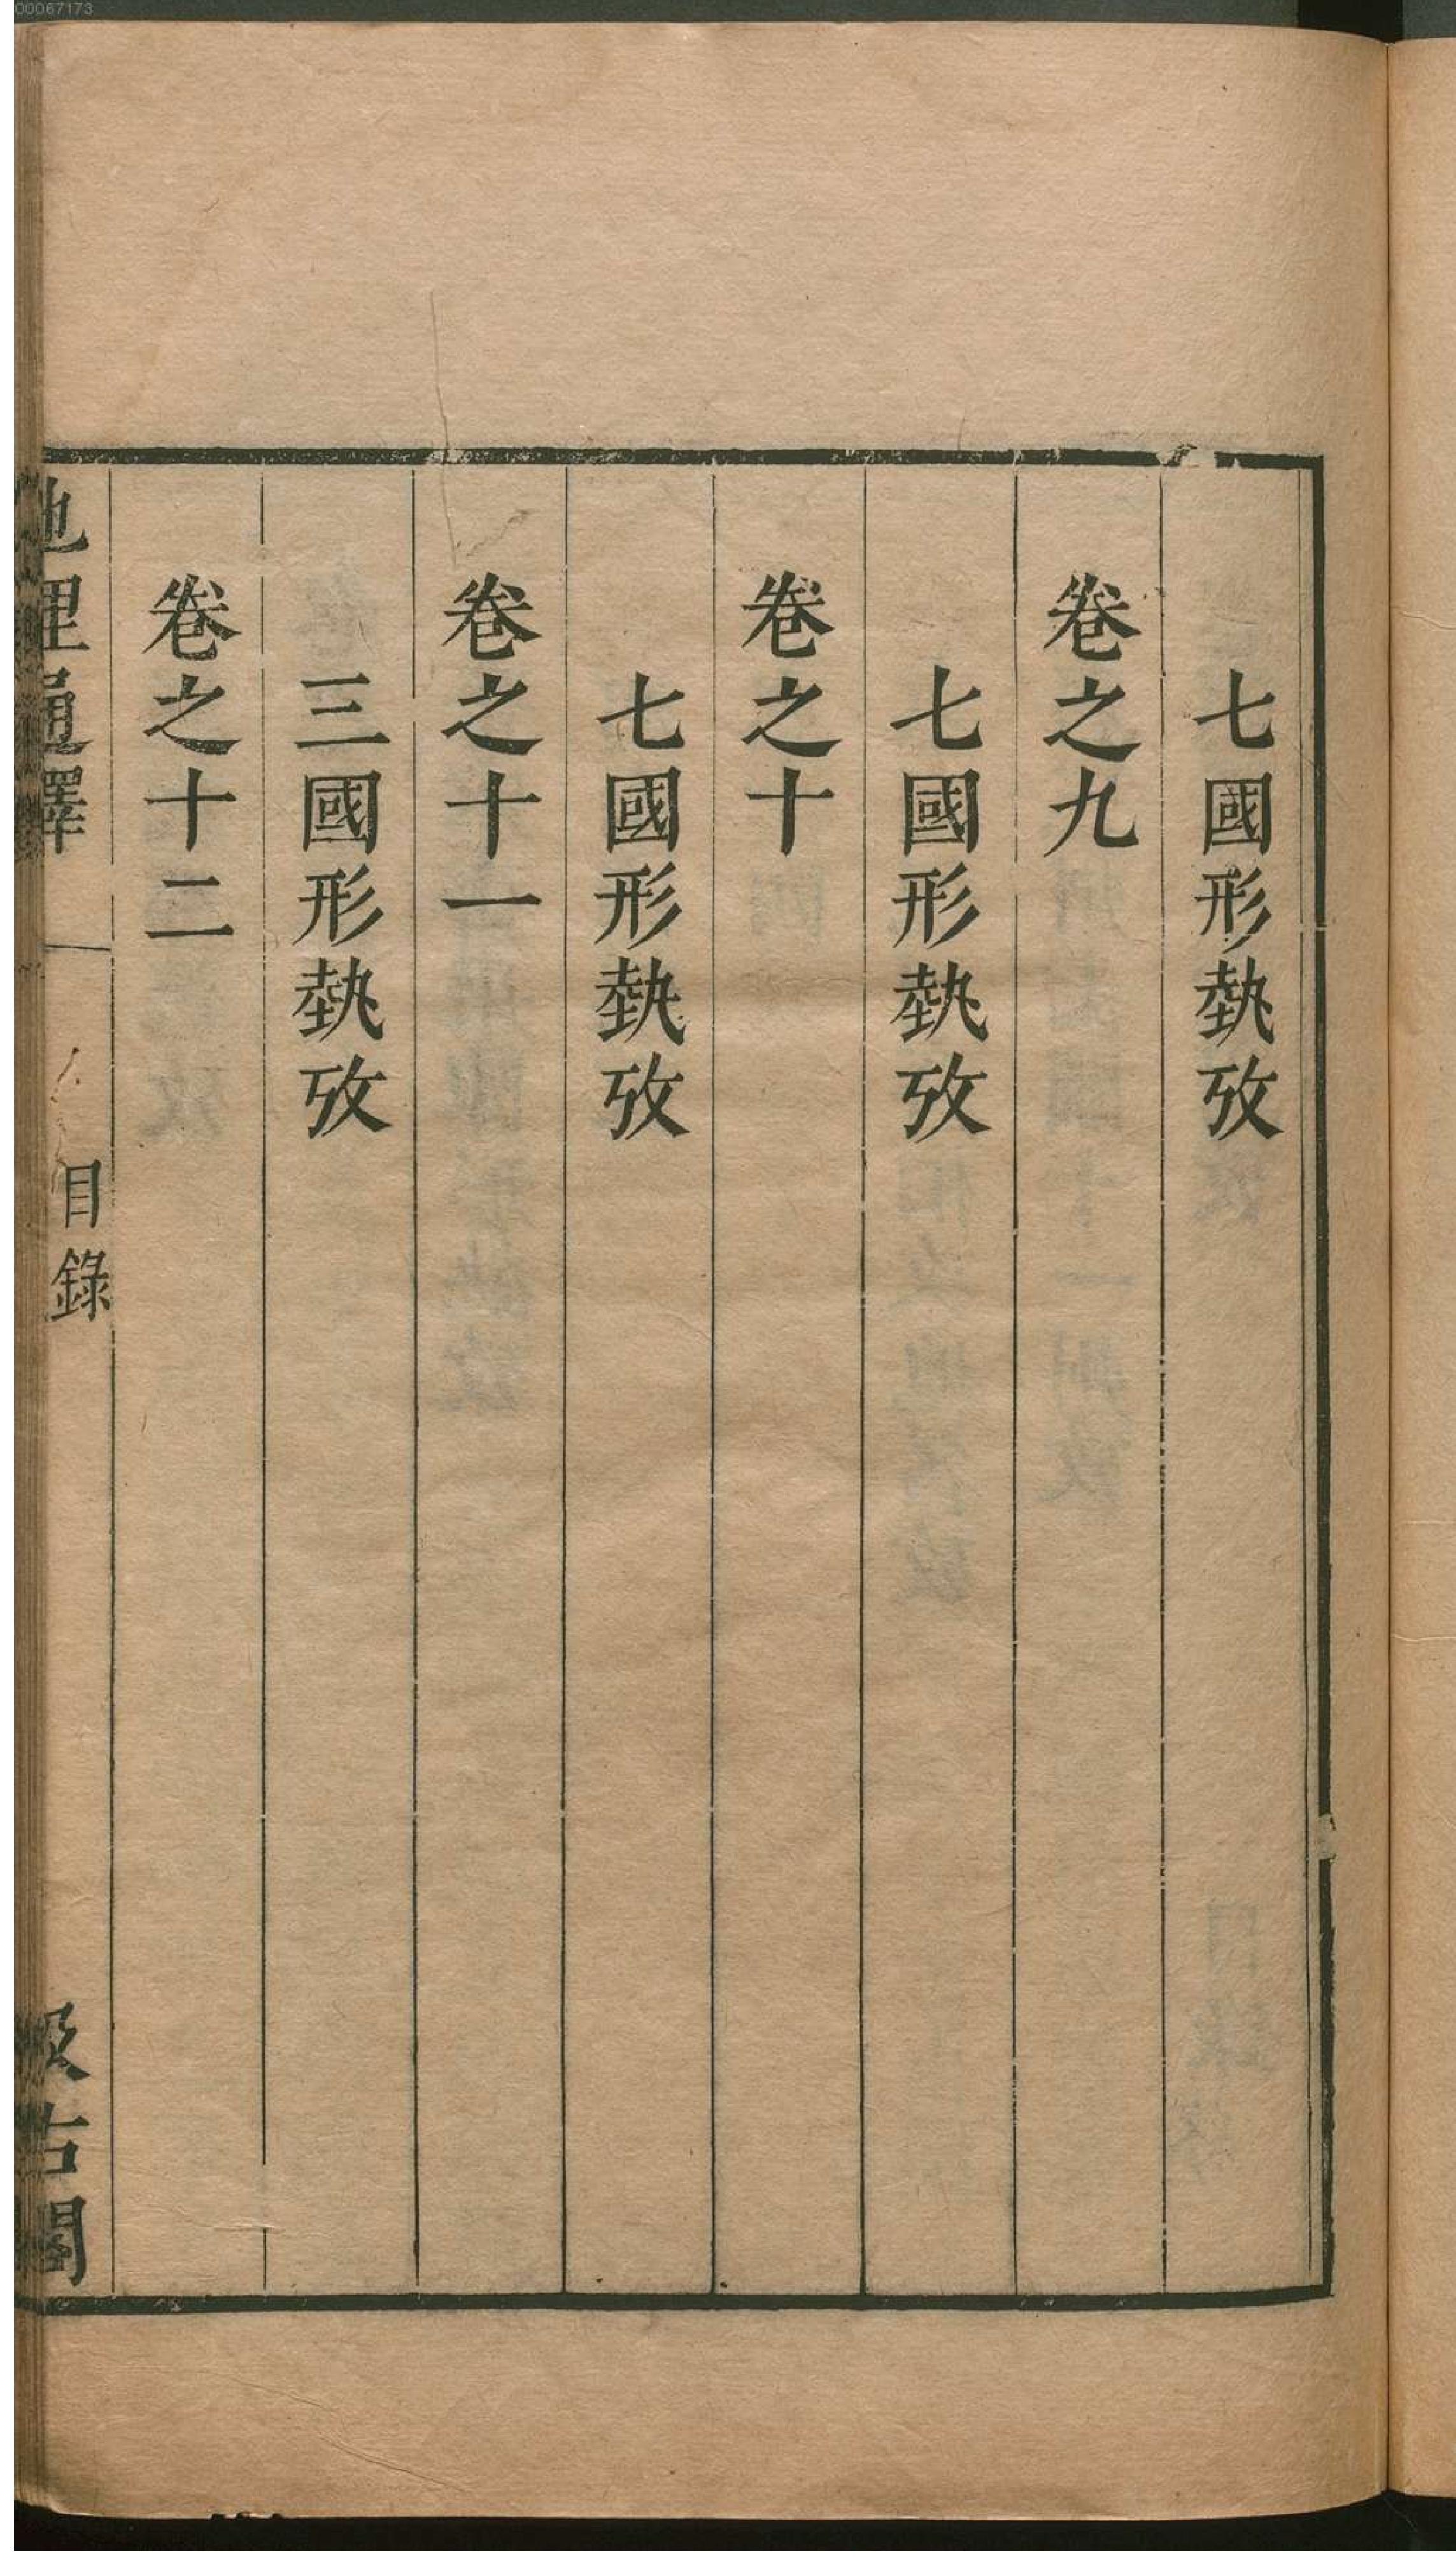 七國形埶攷
卷之九
七國形埶攷
卷之十
七國形埶攷
卷之十一
三國形埶攷
卷之十二
地理通釋
目錄
汲古閣
00067173